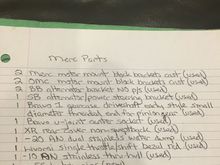 Merc Parts
2 Merc motor mount block brackets cast (used)
2 OMC motor mount block brackets cast (used)
2 BB alternator bracket NO p/s (used)
1 SB alternator/power steering bracket (used)
1 Bravo 1 gearcase driveshaft early style small
diameter threaded end for pinion gear (used)
1 Bravo u-joint center socket (used)
1 XR rear
1 -20 AN dual stainless water dump (used)
1 single throttle/shift bezel red (used)
1 -10 AN stainless thru hull (used)